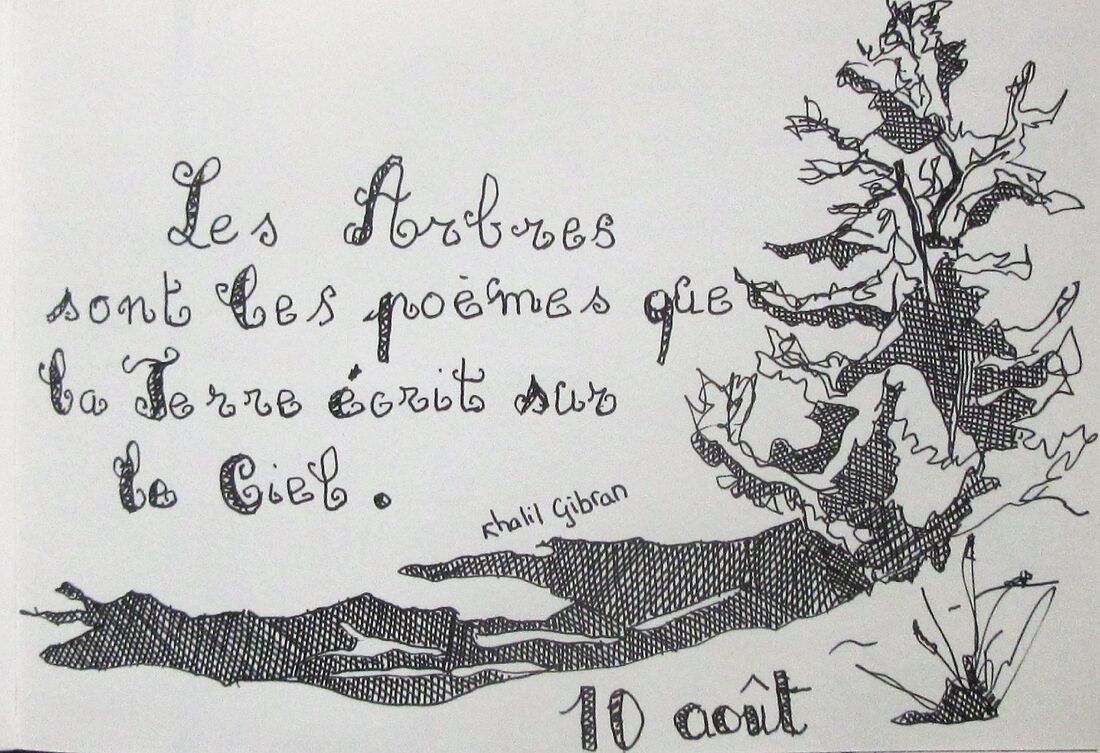 Les Arbres
sont les poèmes que
la Terre écrit sur
le Ciel.
Khalil Gibran
10 août